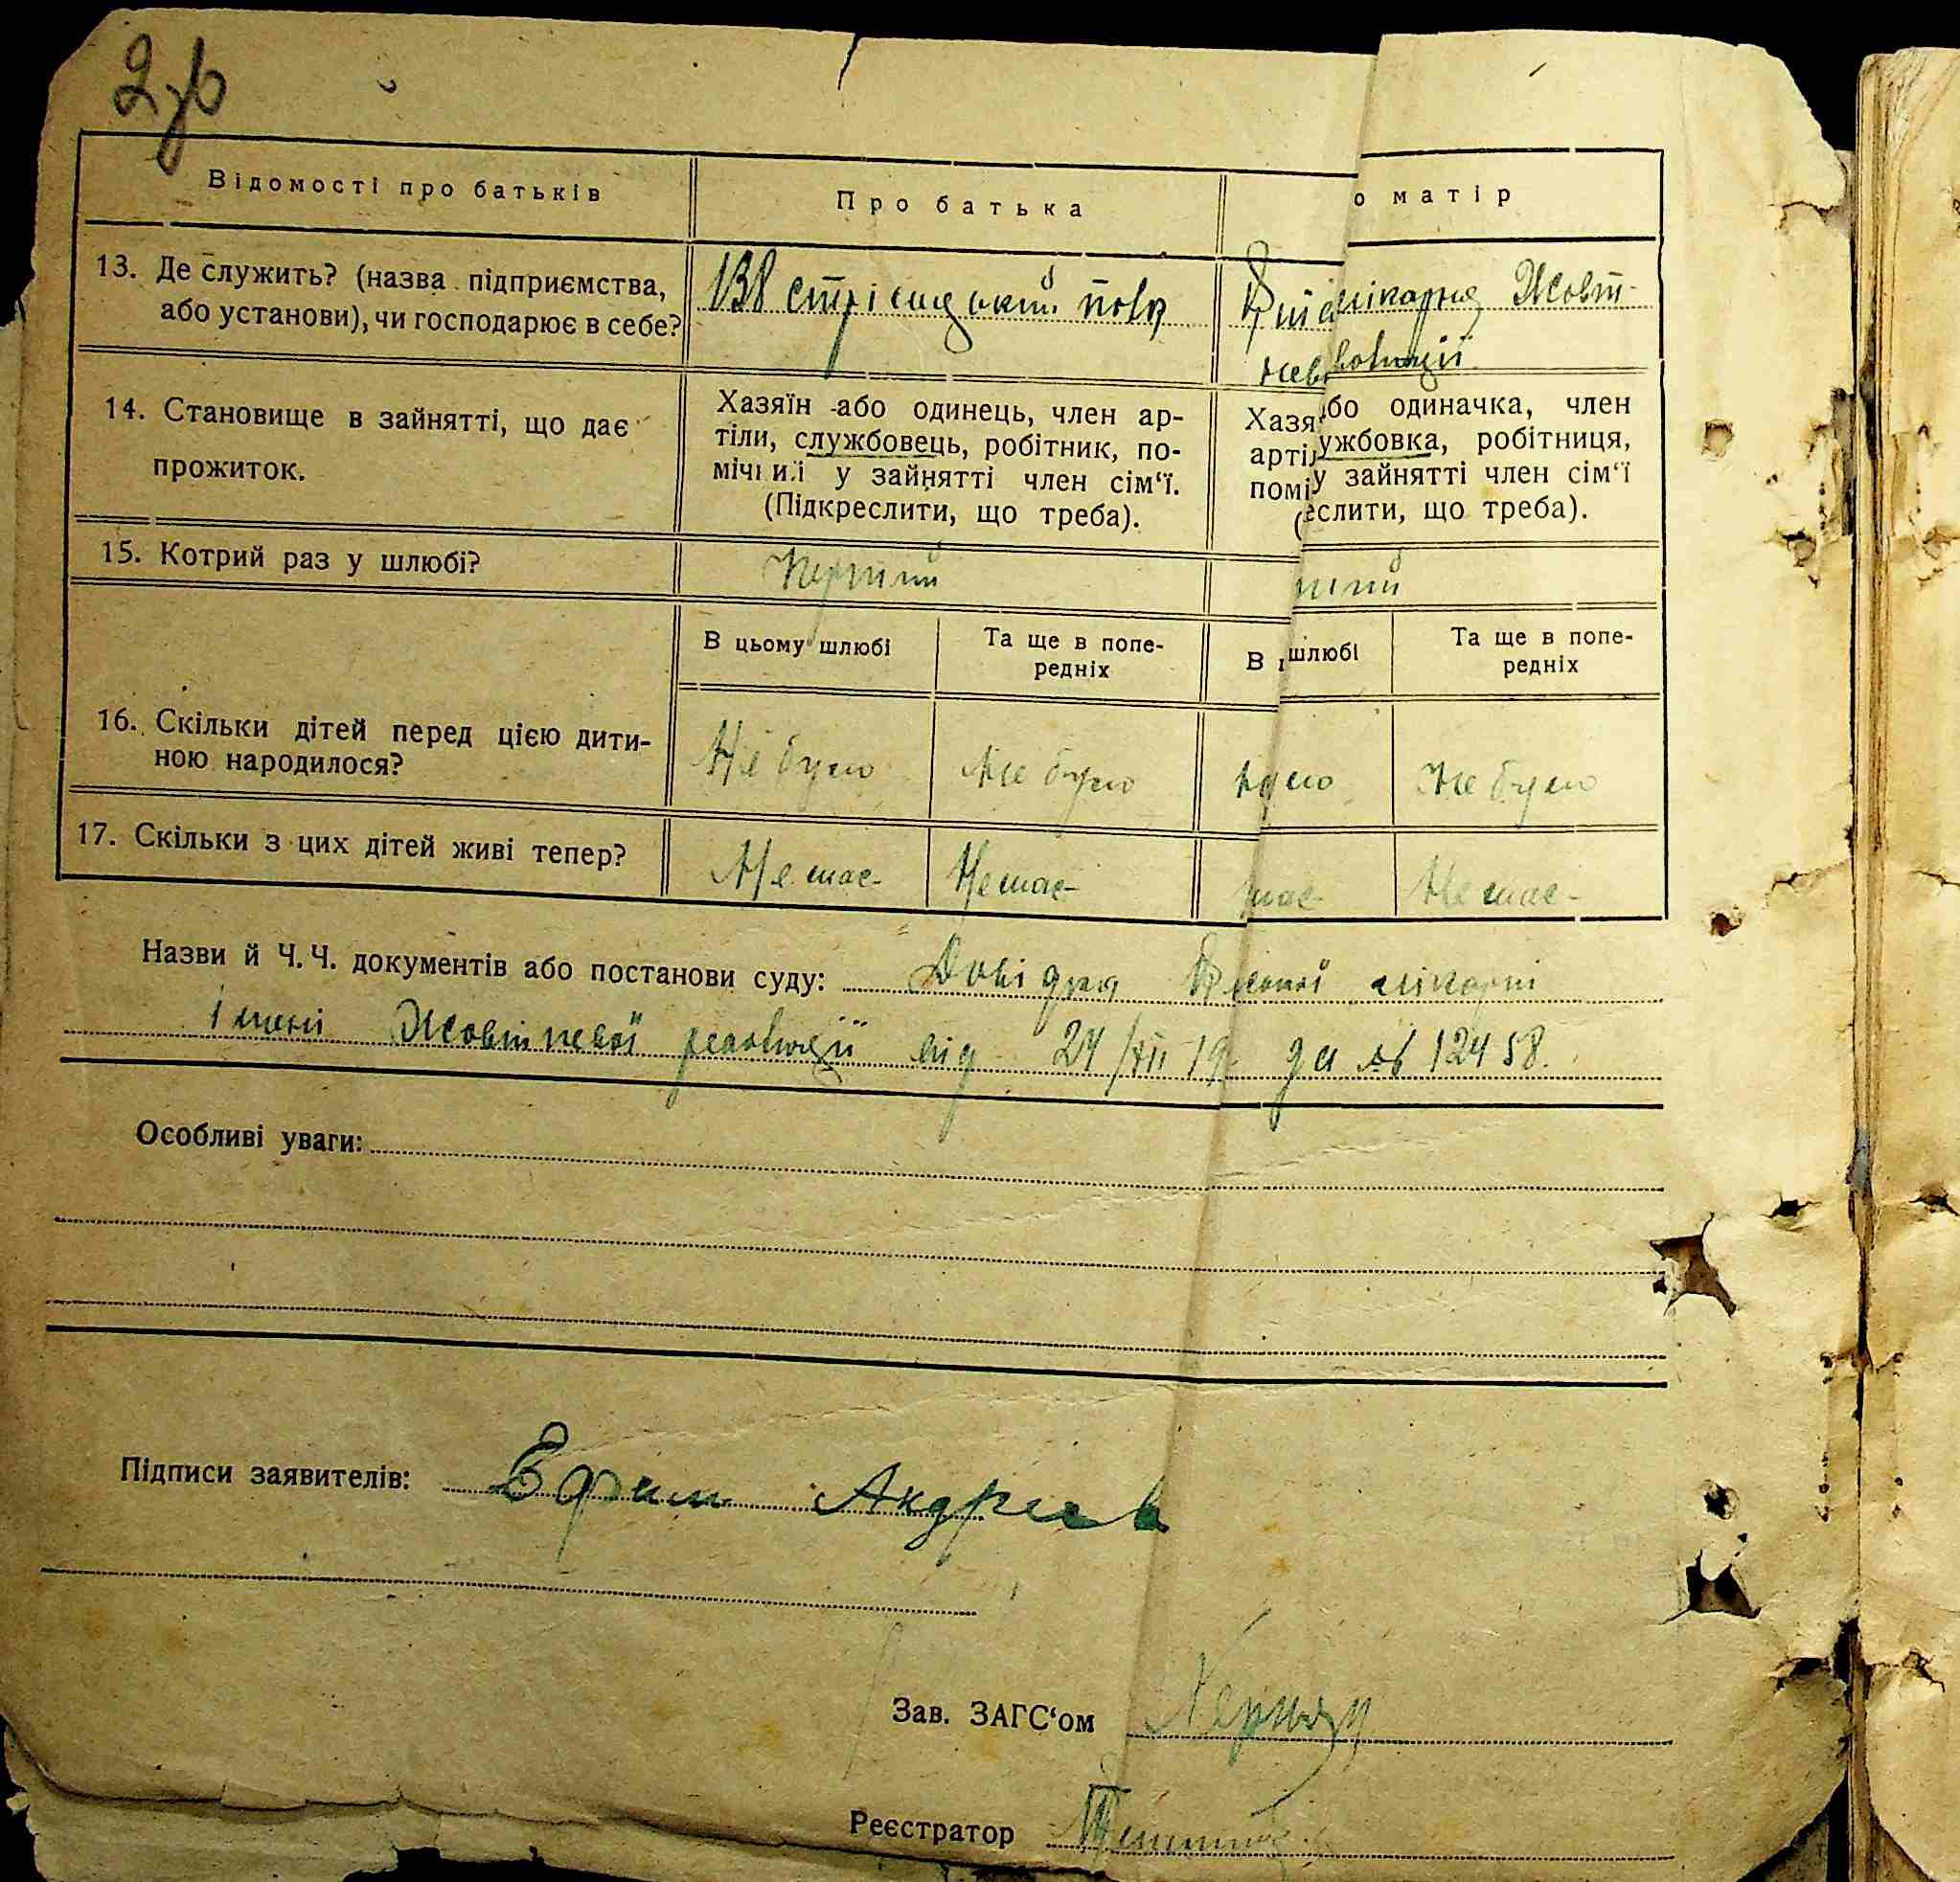 Відомості про батьків
Про батька
о матір
13. Де служить? (назва підприємства,
або установи), чи господарює в себе?
138 стрілецький полк
лікарня Жовт-
14. Становище в зайнятті, що дає
прожиток.
Хазяїн або одинець, член ар-
тіли, службовець, робітник, по-
мічний у зайнятті член сім'ї.
(Підкреслити, що треба).
Хазя або одиначка, член
артіл ужбовка, робітниця,
помі у зайнятті член сім'ї
еслити, що треба).
15. Котрий раз у шлюбі?
Перший
ший
В цьому шлюбі
Та ще в попе-
редніх
В шлюбі
Та ще в попе-
редніх
16. Скільки дітей перед цією дити-
ною народилося?
Не було
Не було
було
Не було
17. Скільки з цих дітей живі тепер?
Немає
Немає
має
Немає
Назви й Ч. Ч. документів або постанови суду: Довідка лікарні
імені Жовтневої революції від 24/XII 19 за № 12458.
Особливі уваги:
Підписи заявителів: Ефим Андреев
Зав. ЗАГС'ом
Реєстратор